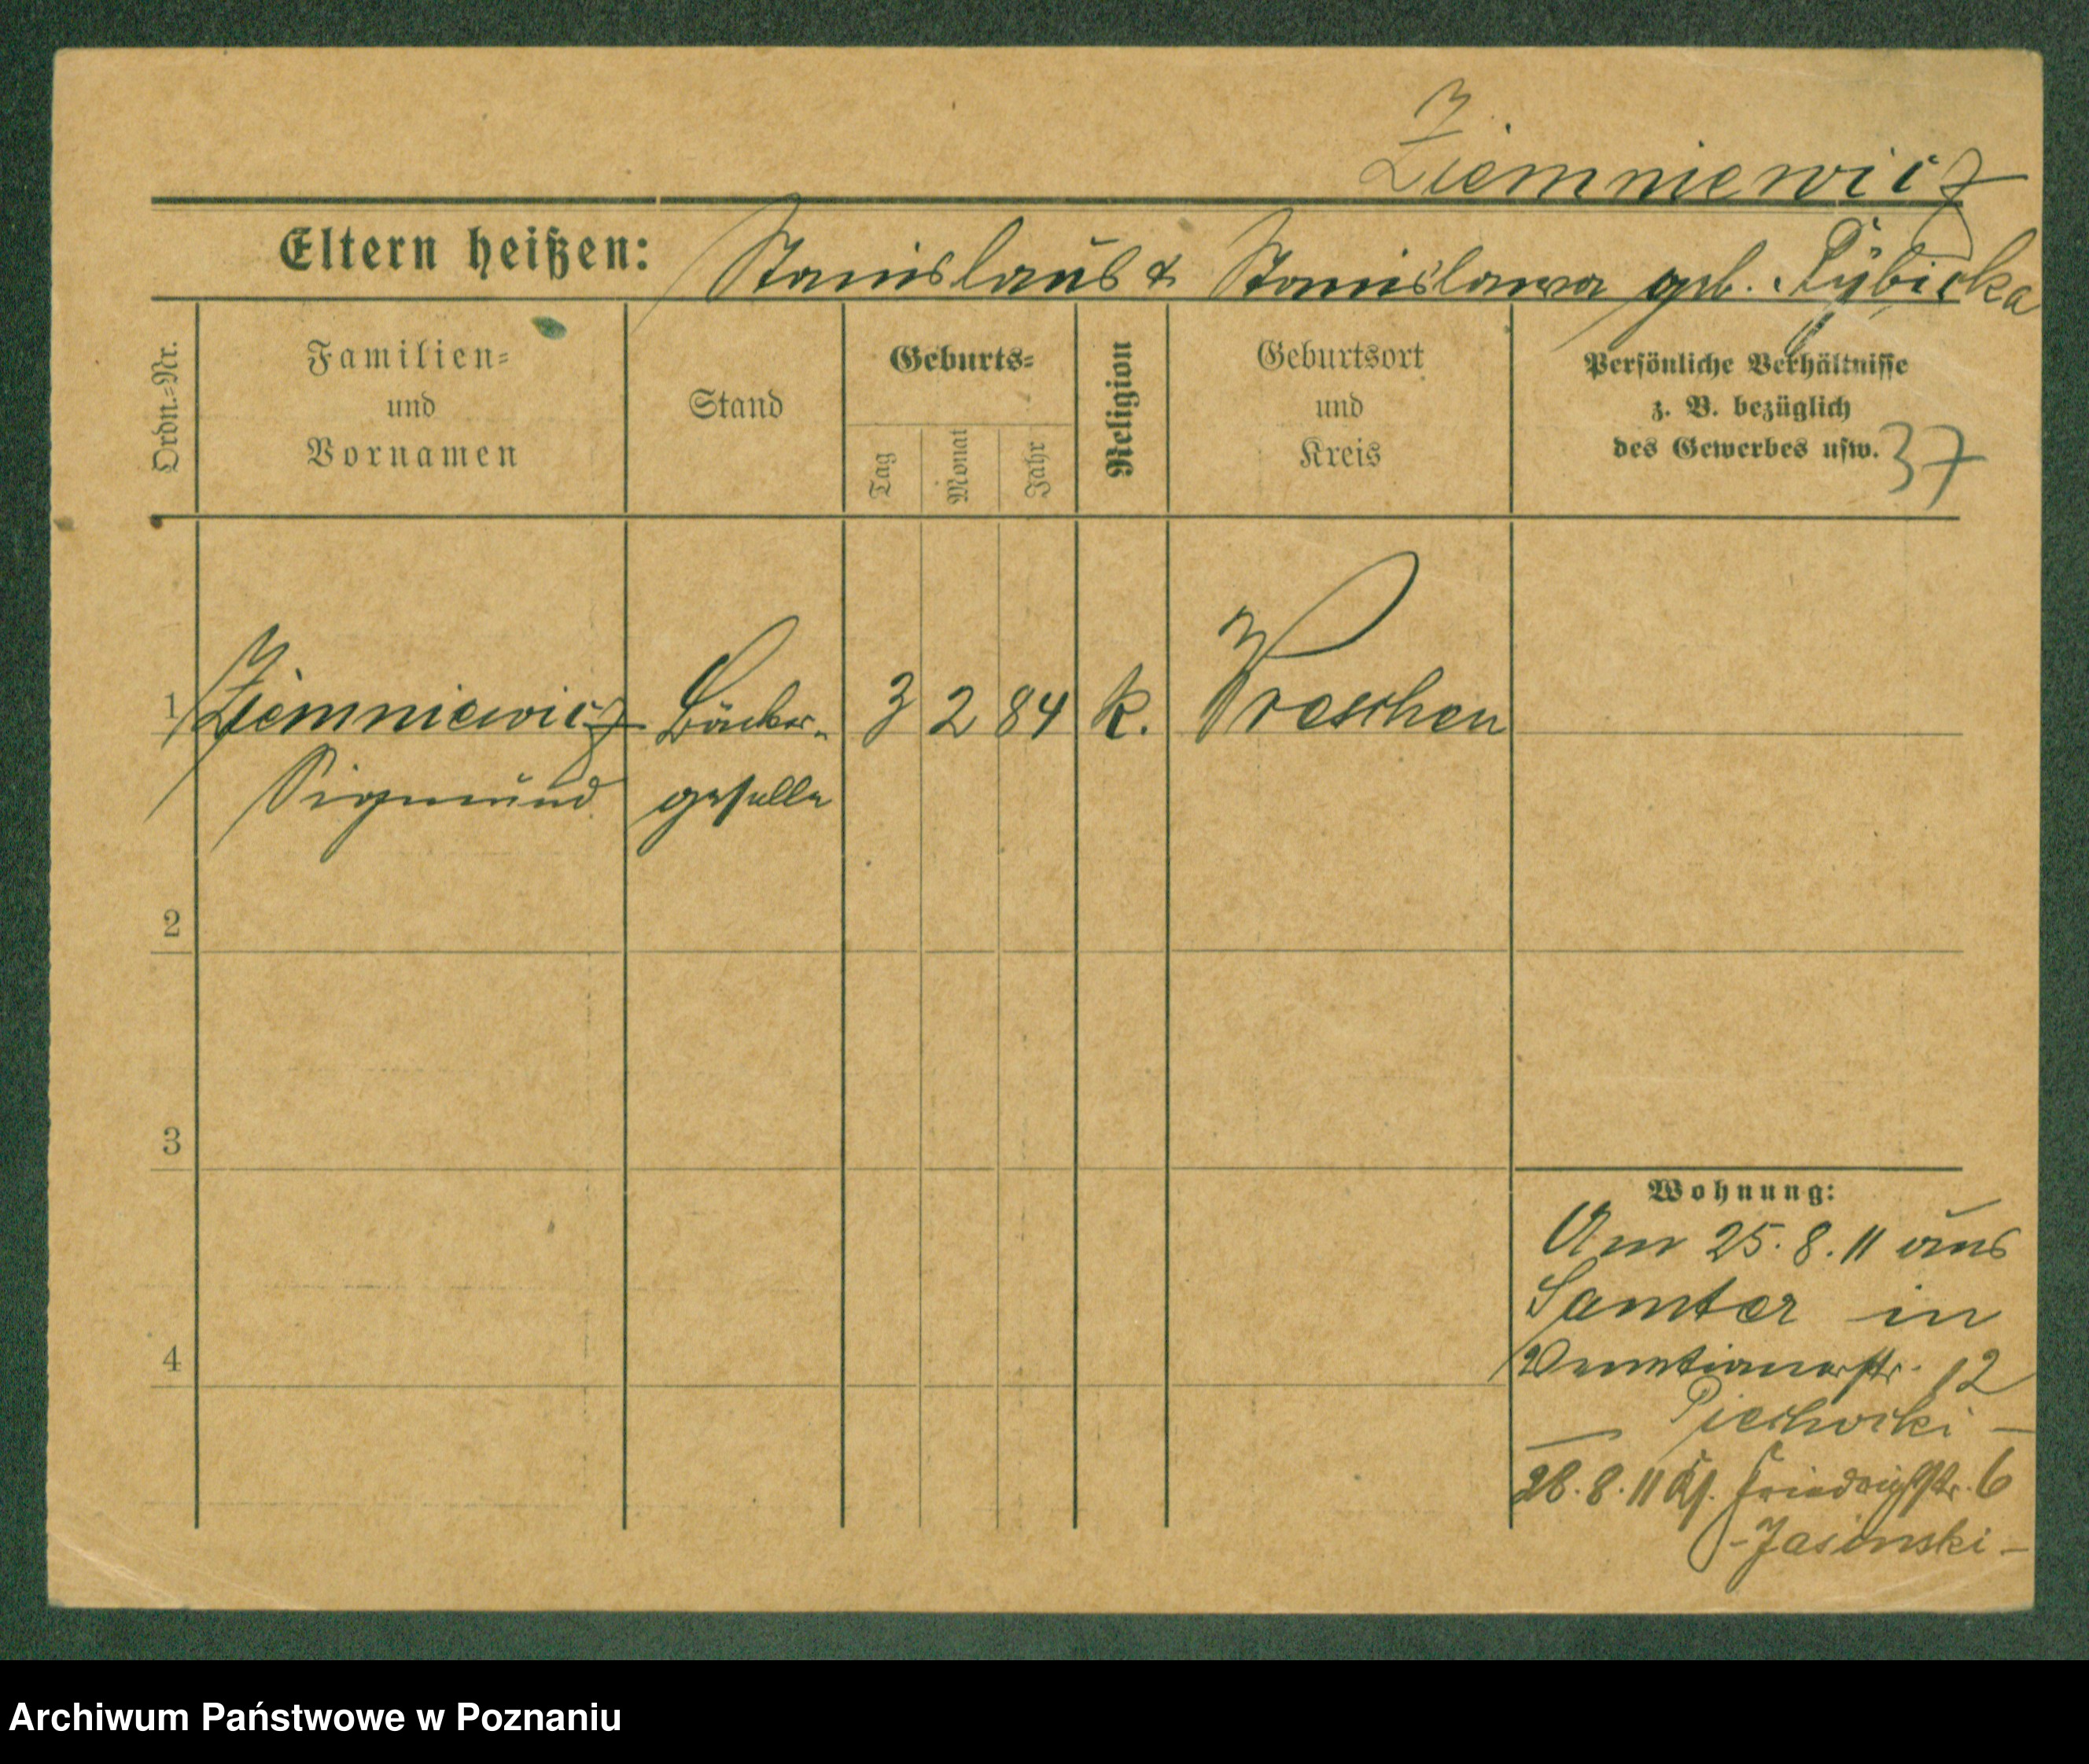 Ziemniewicz
Eltern heißen: Stanislaus & Stanislawa geb. Rybicka
Ordn.=Nr.
Familien=
und
Vornamen
Stand
Geburts=
Tag
Monat
Jahr
Religion
Geburtsort
und
Kreis
Persönliche Verhältnisse
z. B. bezüglich
des Gewerbes usw.
37
1 Ziemniewicz Bäcker- 3 2 84 k. Wreschen
Sigmund geselle
2
3
Wohnung:
Am 25.8.11 aus
Samter in
4
12
Piechocki -
28.8.11 Friedrichstr. 6
- Jasinski -
Archiwum Państwowe w Poznaniu